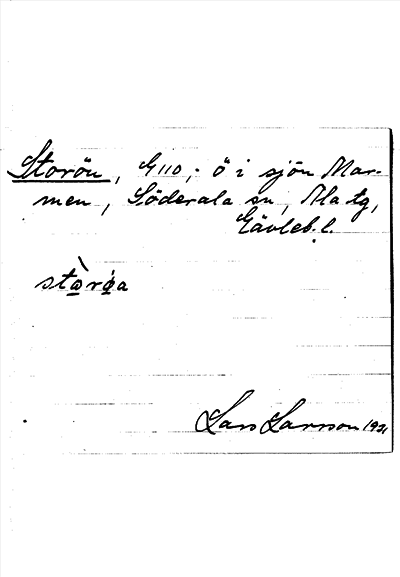 Storön, G110, ö i sjön Mar-
men, Söderala sn, Ala tg,
Gävleb. l.
Lars Larsson 1921